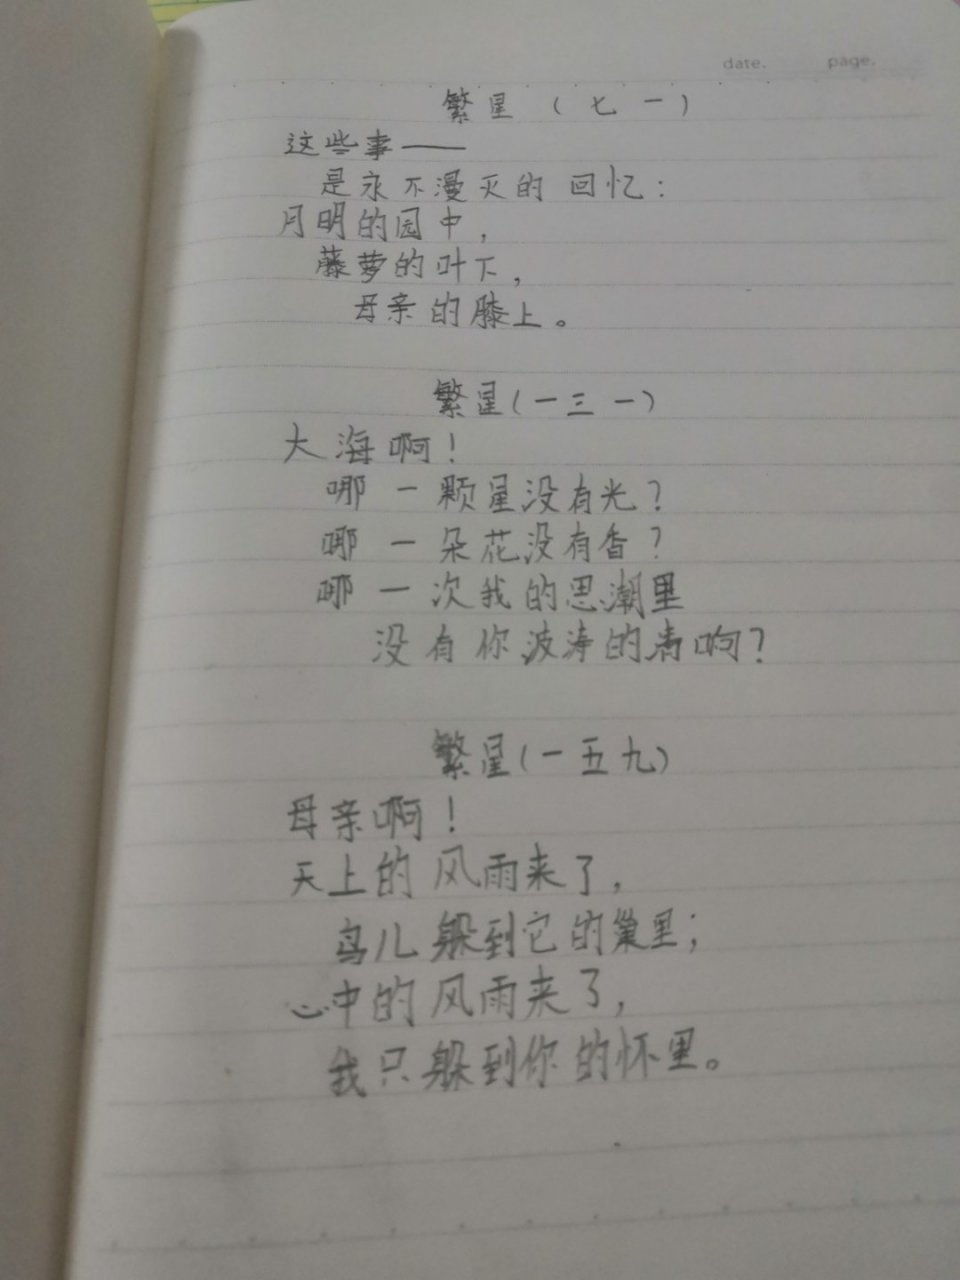 date. page.
繁星（七一）
这些事——
是永不漫灭的回忆：
月明的园中，
藤萝的叶下，
母亲的膝上。
繁星（一三一）
大海啊！
哪一颗星没有光？
哪一朵花没有香？
哪一次我的思潮里
没有你波涛的清响？
繁星（一五九）
母亲啊！
天上的风雨来了，
鸟儿躲到它的巢里；
心中的风雨来了，
我只躲到你的怀里。